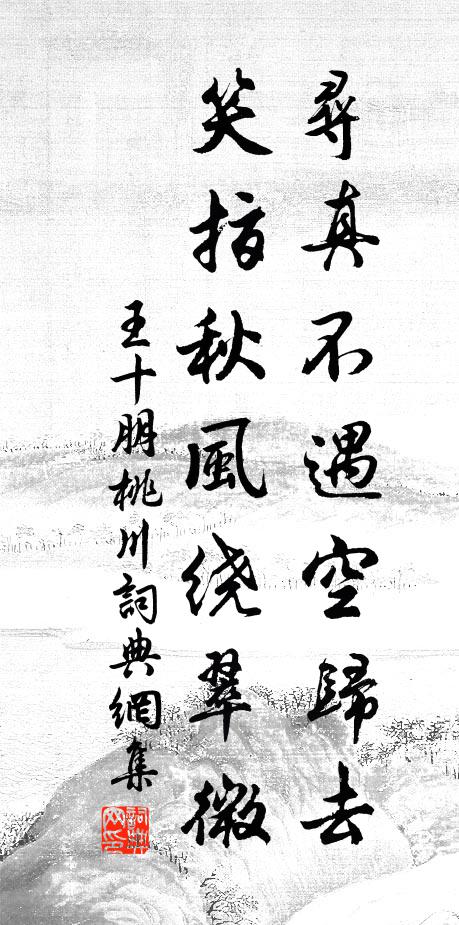 尋真不遇空歸去
笑指秋風繞翠微
王十朋桃川詞典網集